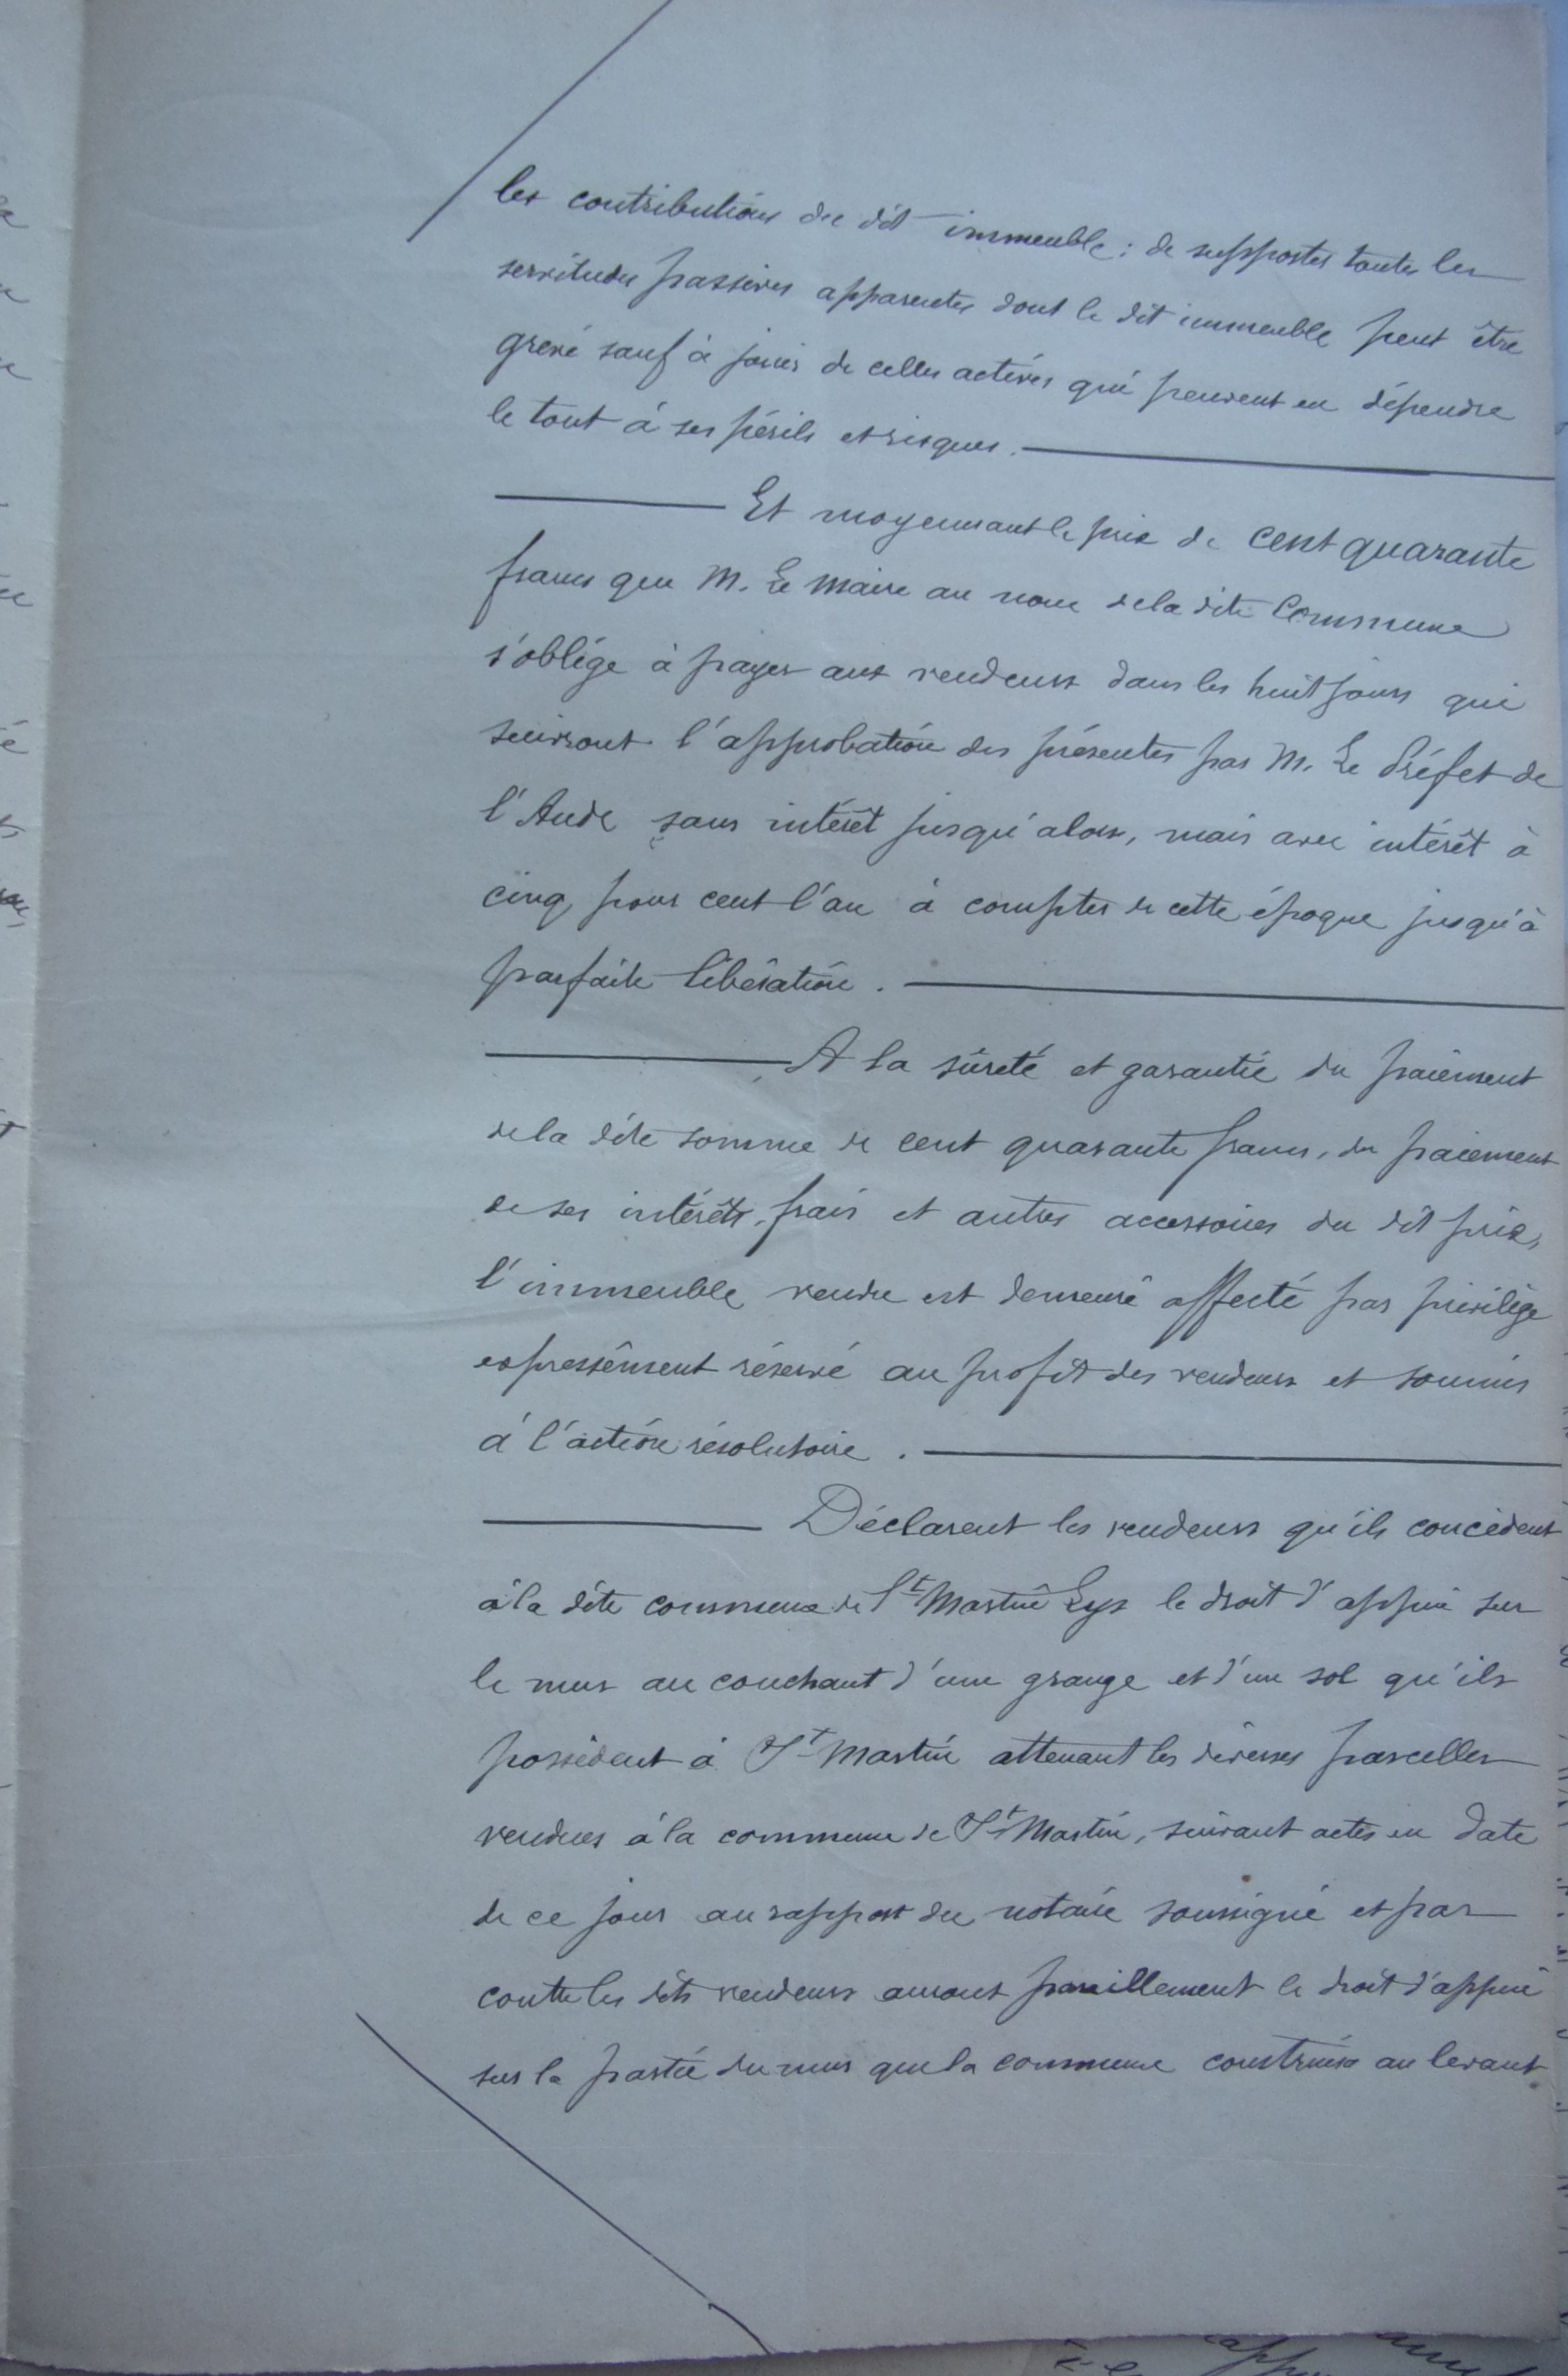 les contributions du dit immeuble ; de supporter toutes les
servitudes passives apparentes dont le dit immeuble peut être
grevé sauf à jouir de celles actives qui peuvent en dépendre
le tout à ses périls et risques.
Et moyennant le prix de cent quarante
francs que M. Le Maire au nom de la dite Commune
s'oblige à payer aux vendeurs dans les huit jours qui
suivront l'approbation des présentes par M. Le Préfet de
l'Aude sans intérêt jusqu'alors, mais avec intérêt à
cinq pour cent l'an à compter de cette époque jusqu'à
parfaite libération.
A la sûreté et garantie du paiement
de la dite somme de cent quarante francs, du paiement
de ses intérêts, frais et autres accessoires du dit prix,
l'immeuble vendu est demeuré affecté par privilège
expressément réservé au profit des vendeurs et soumis
à l'action résolutoire.
Déclarent les vendeurs qu'ils concèdent
à la dite commune de St Martin Lys le droit d'appui sur
le mur au couchant d'une grange et d'un sol qu'ils
possèdent à St Martin attenant les diverses parcelles
vendues à la commune de St Martin, suivant actes en date
de ce jour au rapport du notaire soussigné et par
contre les dits vendeurs auront pareillement le droit d'appui
sur la partie du mur que la commune construira au levant